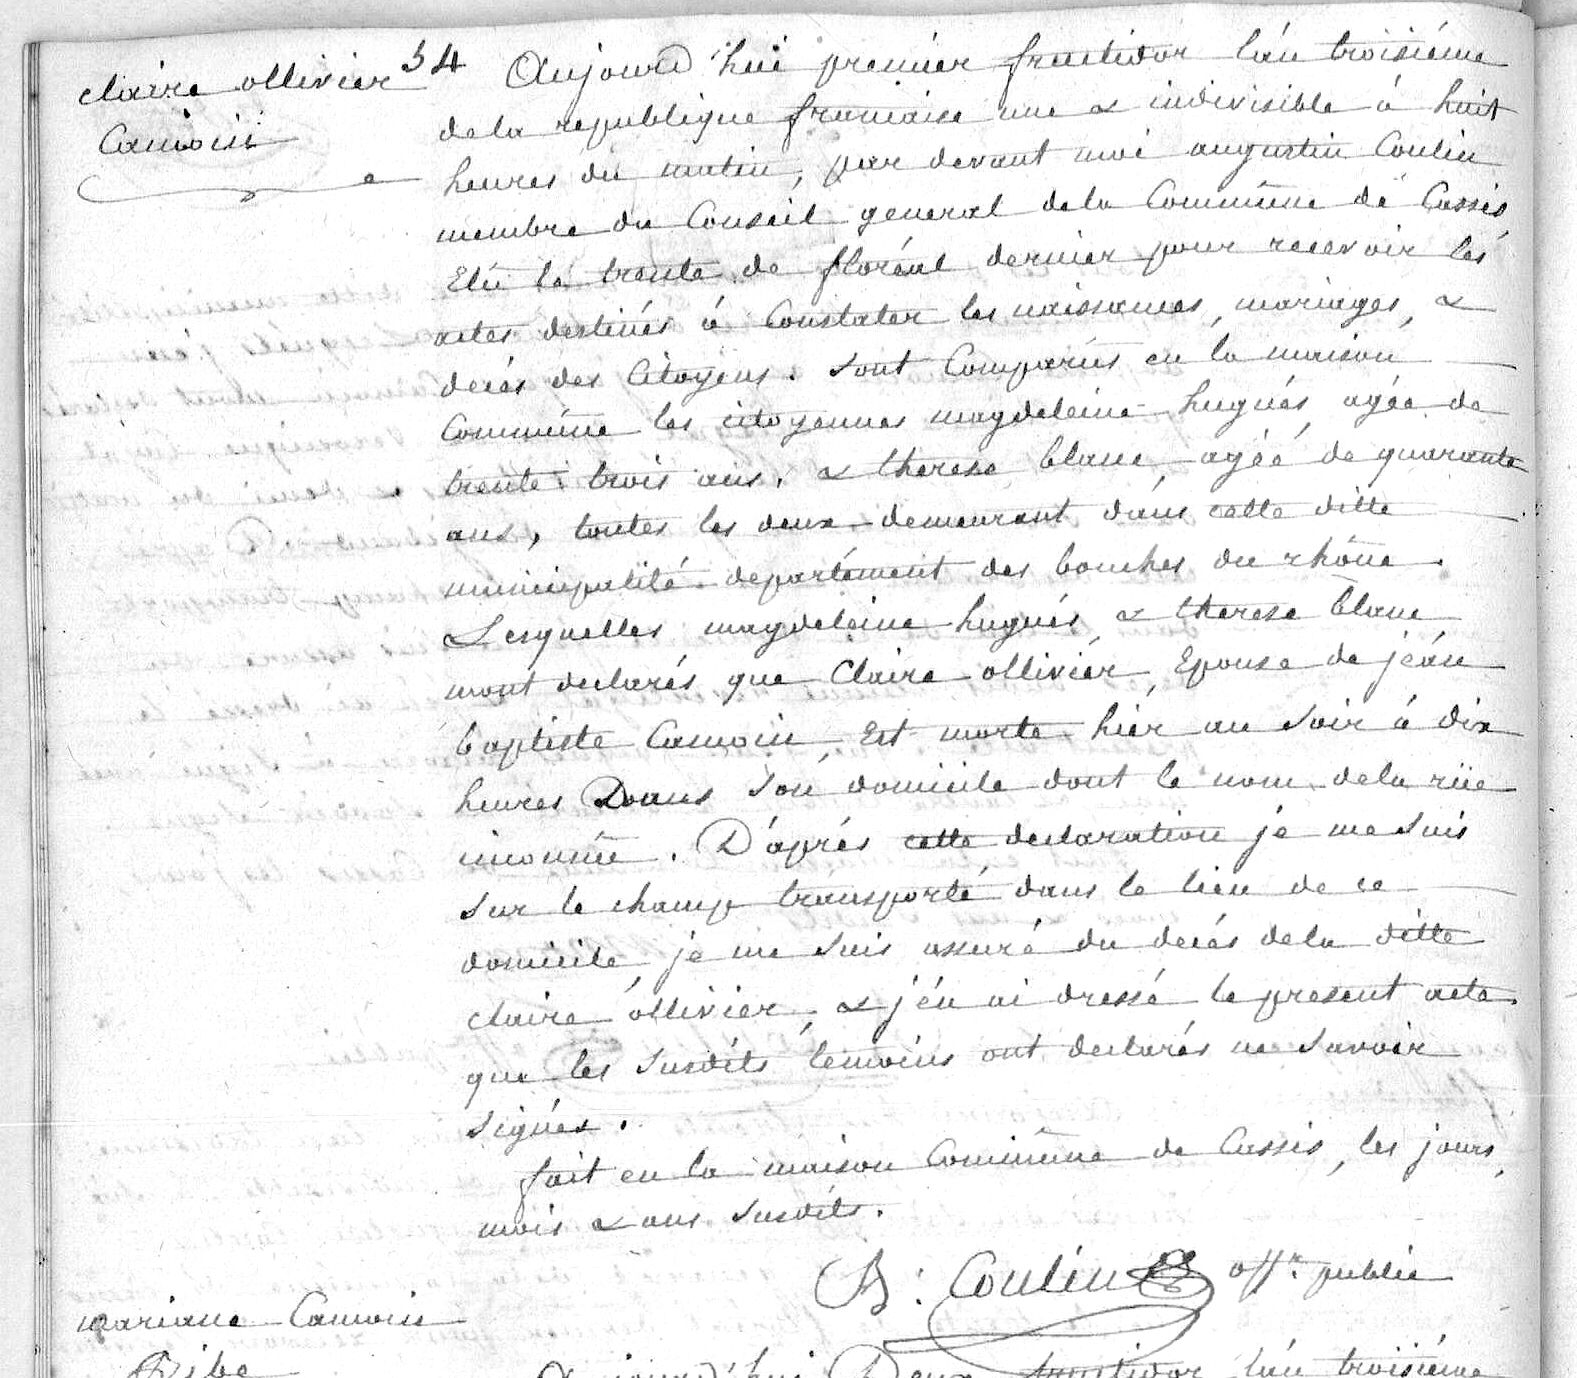 claire ollivier 34
Camoin
Aujourd'hui premier fructidor l'an troisiéme
de la republique francaise une & indivisible à huit
heures du matin, par devant moi augustin Coulin
membre du Conseil general de la Commune de Cassis
Elû le trente de floréal dernier pour recevoir les
actes destinés à Constater les naissances, mariages, &
decés des Citoyens. sont Comparûs en la maison
Commune les citoyennes magdeleine hugués, agée de
trente trois ans, & therese blanc agée de quarante
ans, toutes les deux demeurant dans cette ditte
municipalité departément des bouches du rhône.
Lesquelles magdeleine hugués, & therese blanc
mont declarés que Claire ollivier, Epouse de jéan
baptiste Camoin Est morte hier au soir à dix
heures Dans son domicile dont le nom de la rüe
inconnû. D'aprés cette declaration je me suis
sur le champ transporté dans le lieu de ce
domicile, je me suis assuré du decés de la ditte
claire ollivier, & j'en ai dressé le present acte
que les susdits temoins ont declarés ne savoir
signér.
fait en la maison Commune de Cassis, les jours,
mois & ans susdits.
A: Coulin offr. public
mariane Camoin
Ribe
Aujourd'hui Deux fructidor l'an troisiéme